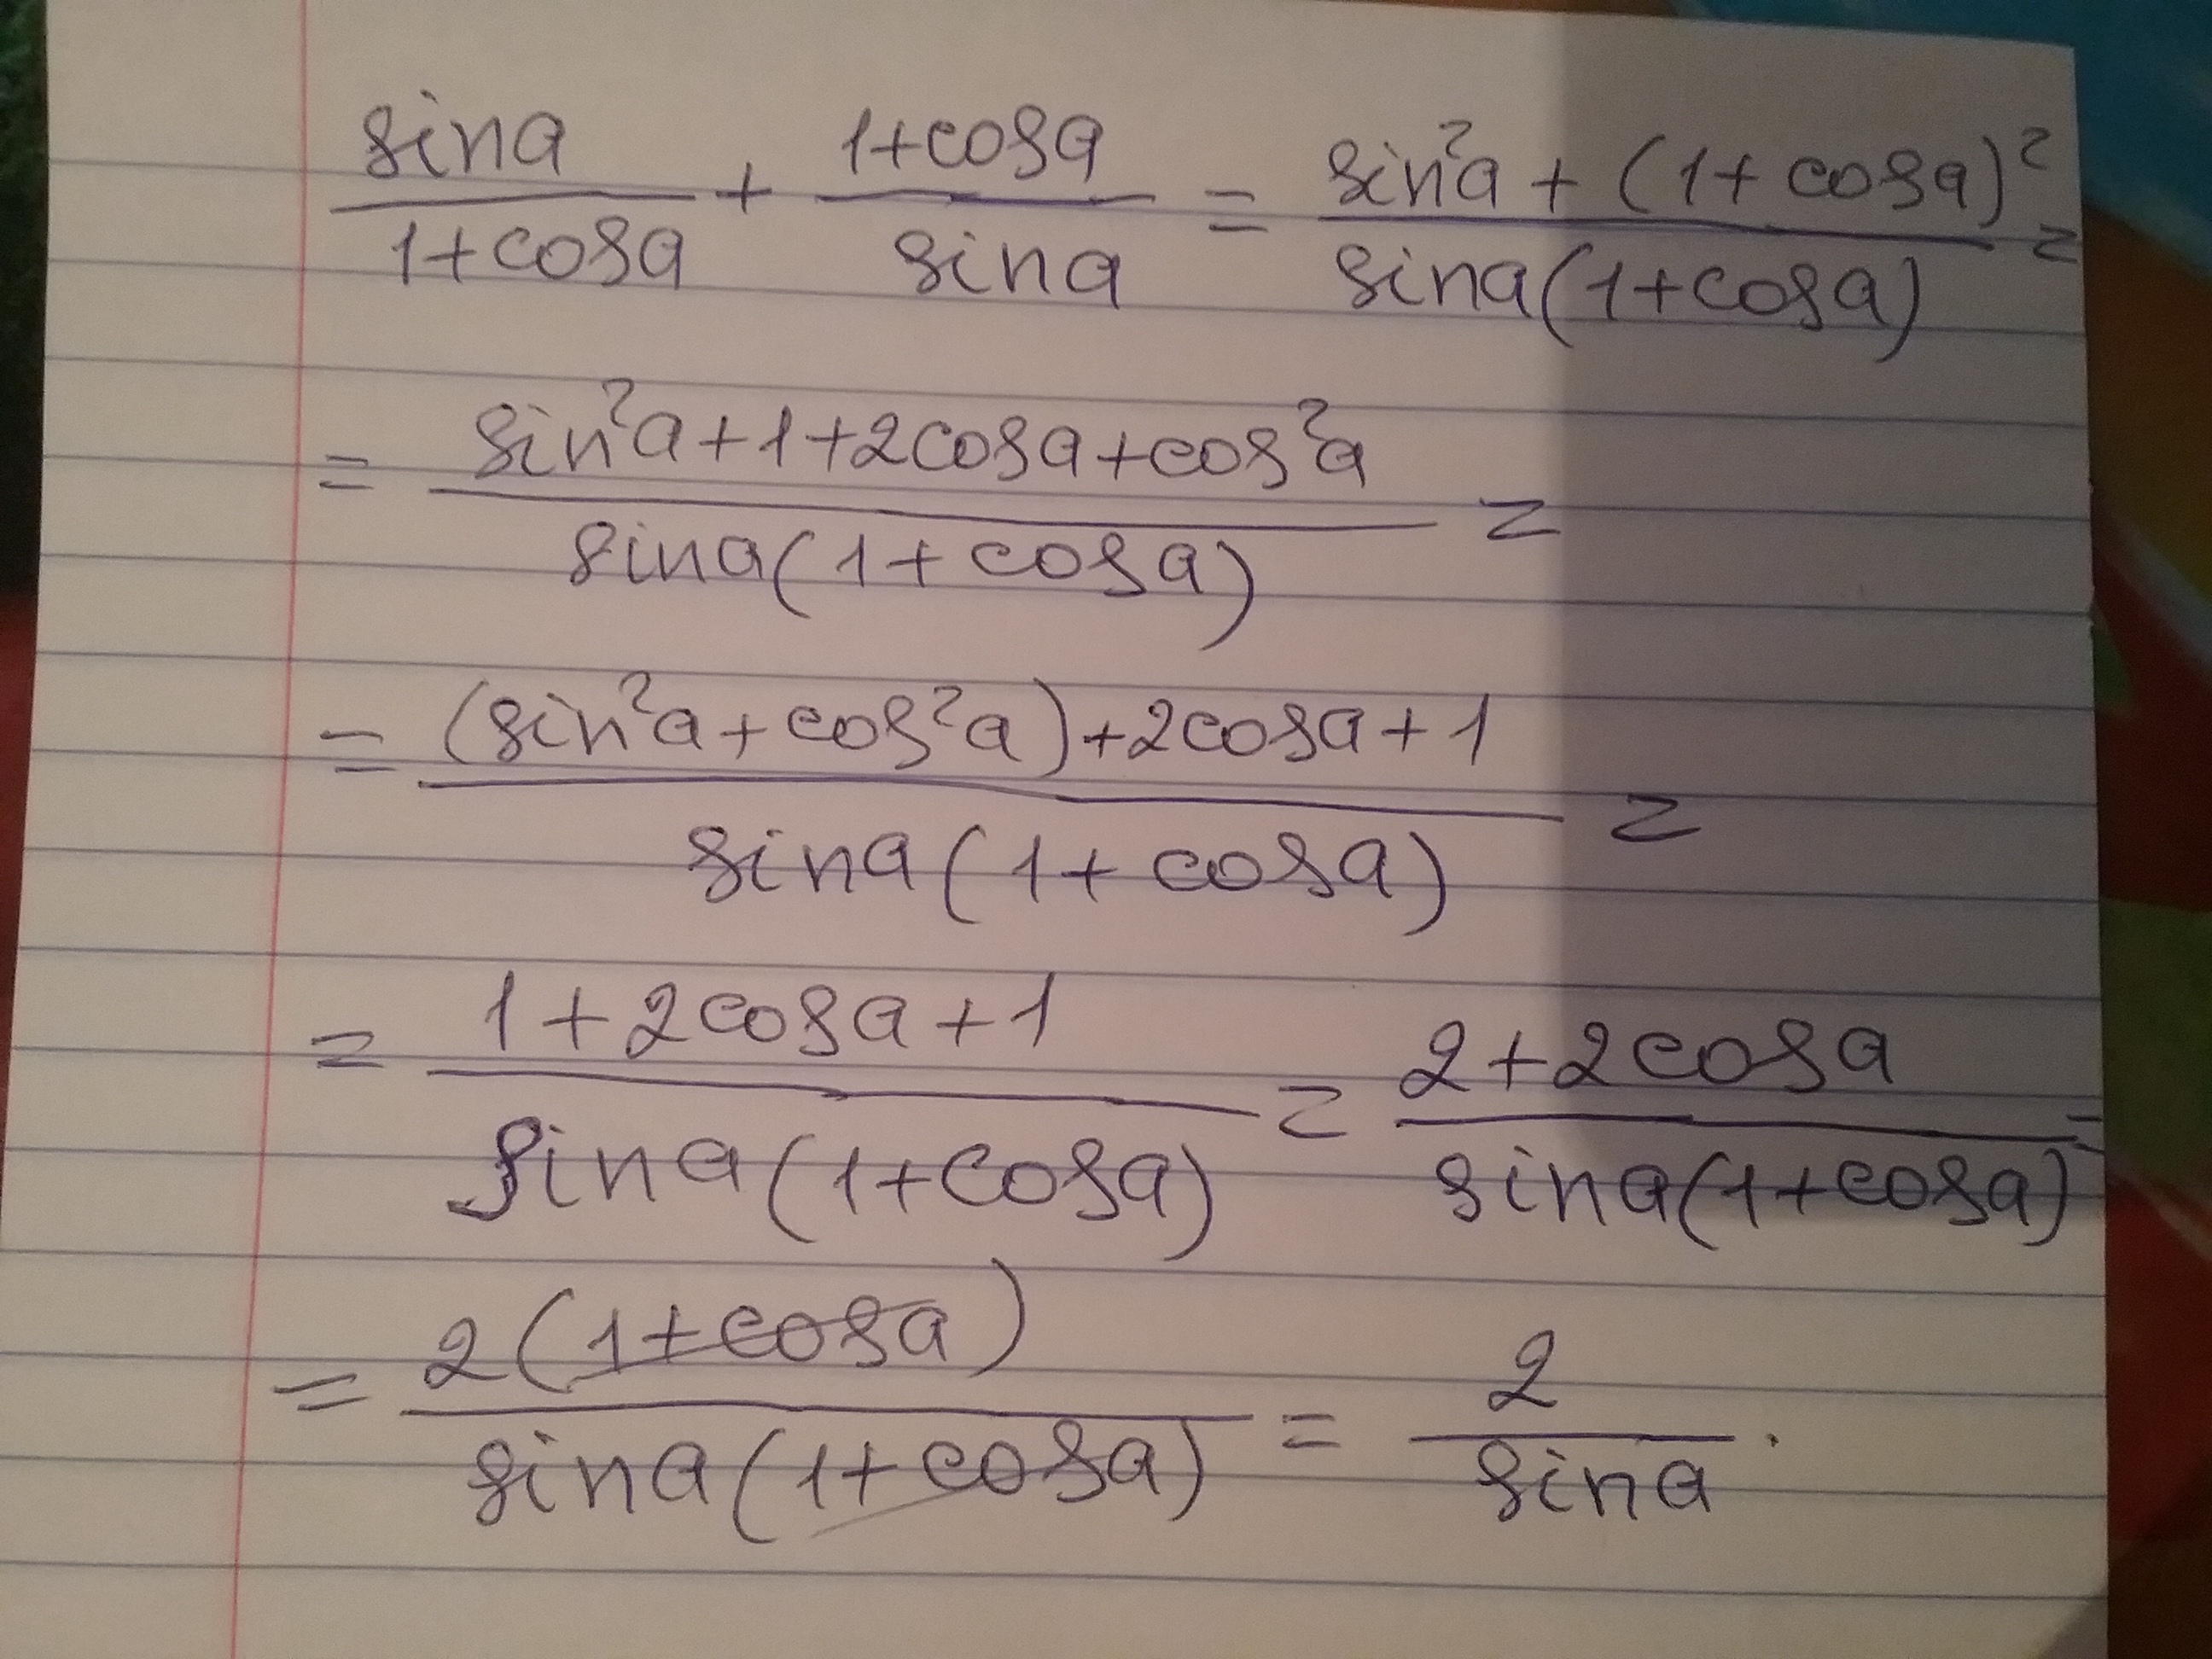 sina/(1+cosa) + (1+cosa)/sina = (sin²a + (1+cosa)²)/(sina(1+cosa)) =
= (sin²a+1+2cosa+cos²a)/(sina(1+cosa)) =
= ((sin²a+cos²a)+2cosa+1)/(sina(1+cosa)) =
= (1+2cosa+1)/(sina(1+cosa)) = (2+2cosa)/(sina(1+cosa)) =
= 2(1+cosa)/(sina(1+cosa)) = 2/sina.